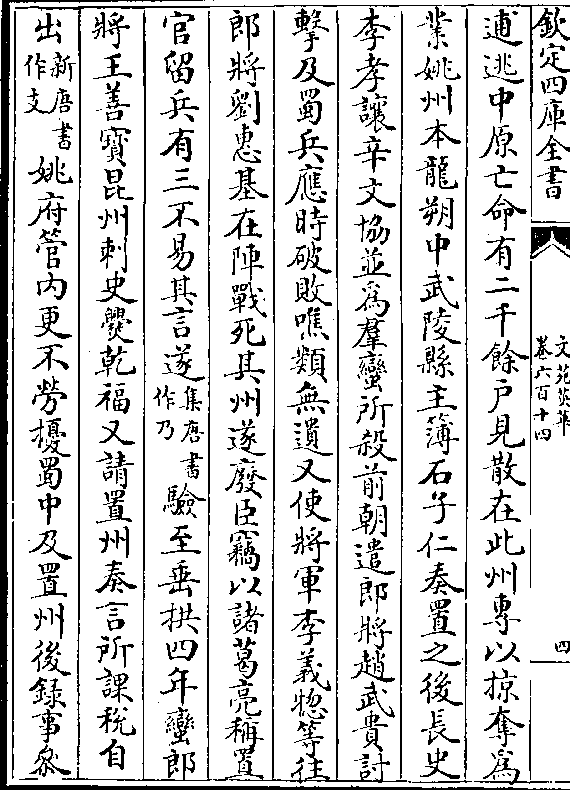 欽定四庫全書
文苑英華
卷六百十四
四
逋逃中原亡命有二千餘户見散在此州專以掠奪為
業姚州本龍朔中武陵縣主簿石子仁奏置之後長史
李孝讓辛文協並為羣蠻所殺前朝遣郎將趙武貴討
擊及蜀兵應時破敗噍類無遺又使將軍李義惣等往
郎將劉惠基在陣戰死其州遂廢臣竊以諸葛亮稱置
官留兵有三不易其言遂集唐書作乃驗至垂拱四年蠻郎
將王善寳昆州刺史爨乾福又請置州奏言所課税自
出新唐書作支姚府管内更不勞擾蜀中及置州後録事叅